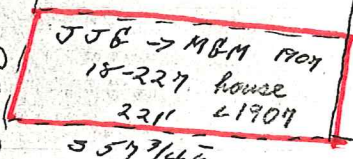 JJG → MGM 1907
18-227 house
221' <1907
S 57 3/4 E